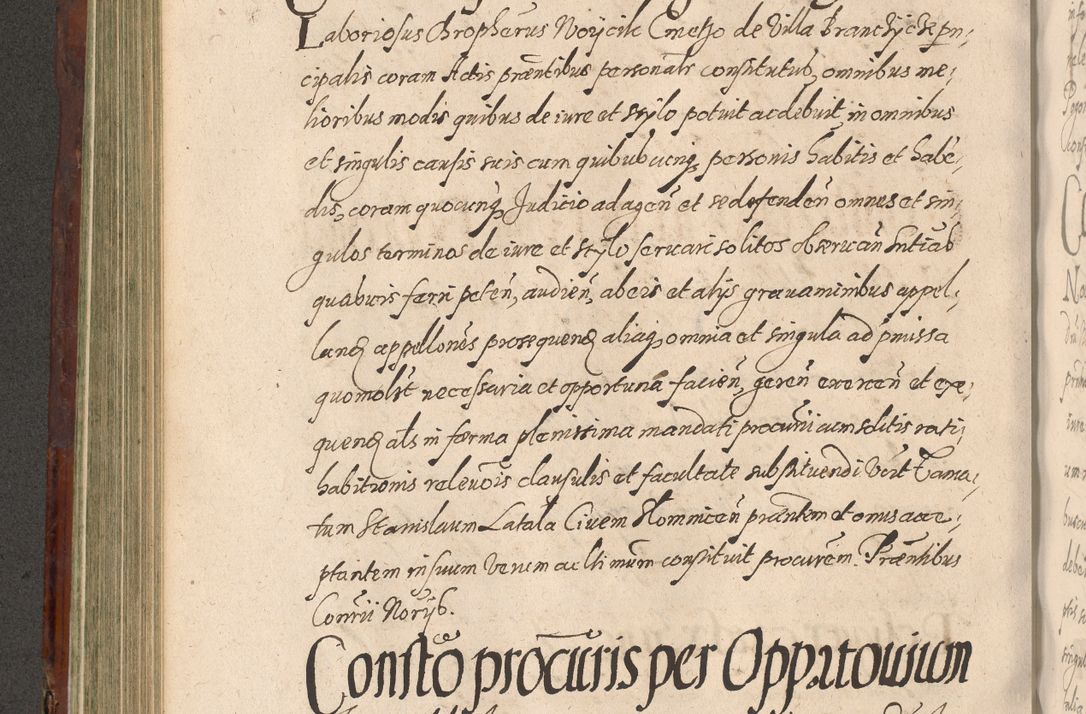 Laboriosus Chropherus Noyicik Cmetho de Villa Branczÿcze prin,
cipalis coram Actis præntibus personalr constitutus, omnibus me,
lioribus modis quibus de iure et stylo potuit ac debuit, in omnibus
et singulis causis suis cum quibubcunq, personis habitis et habē,
dis, coram quocunq, Judicio ad agen̄ et se defenden̄ omnes et sin,
gulos terminos de iure et stylo servari solitos observan̄ sntiab
quabvis ferri peten̄, audien̄, ab eis et alijs gravaminibus appel,
land appellones prosequend aliaq, omnia et singula ad pmissa
quomolƀt necessaria et opportuna facien̄, geren̄ exercen̄ et exe,
quend als in forma plenissima mandati procurii cum solitis rati,
habitionis relevōis clausulis et facultate substituendi vērt Fama,
tum Stanislaum Latala Civem Slomnicen̄ præntem et onus acce,
ptantem in suum verum ac lltimum constituit procurēm. Præntibus
Conrrii Norijb.
Constō procūris per Oppatovium